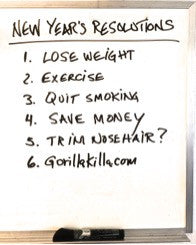 NEW YEAR'S RESOLUTIONS
1. LOSE WEIGHT
2. EXERCISE
3. QUIT SMOKING
4. SAVE MONEY
5. TRIM NOSEHAIR?
6. Gorillakilla.com